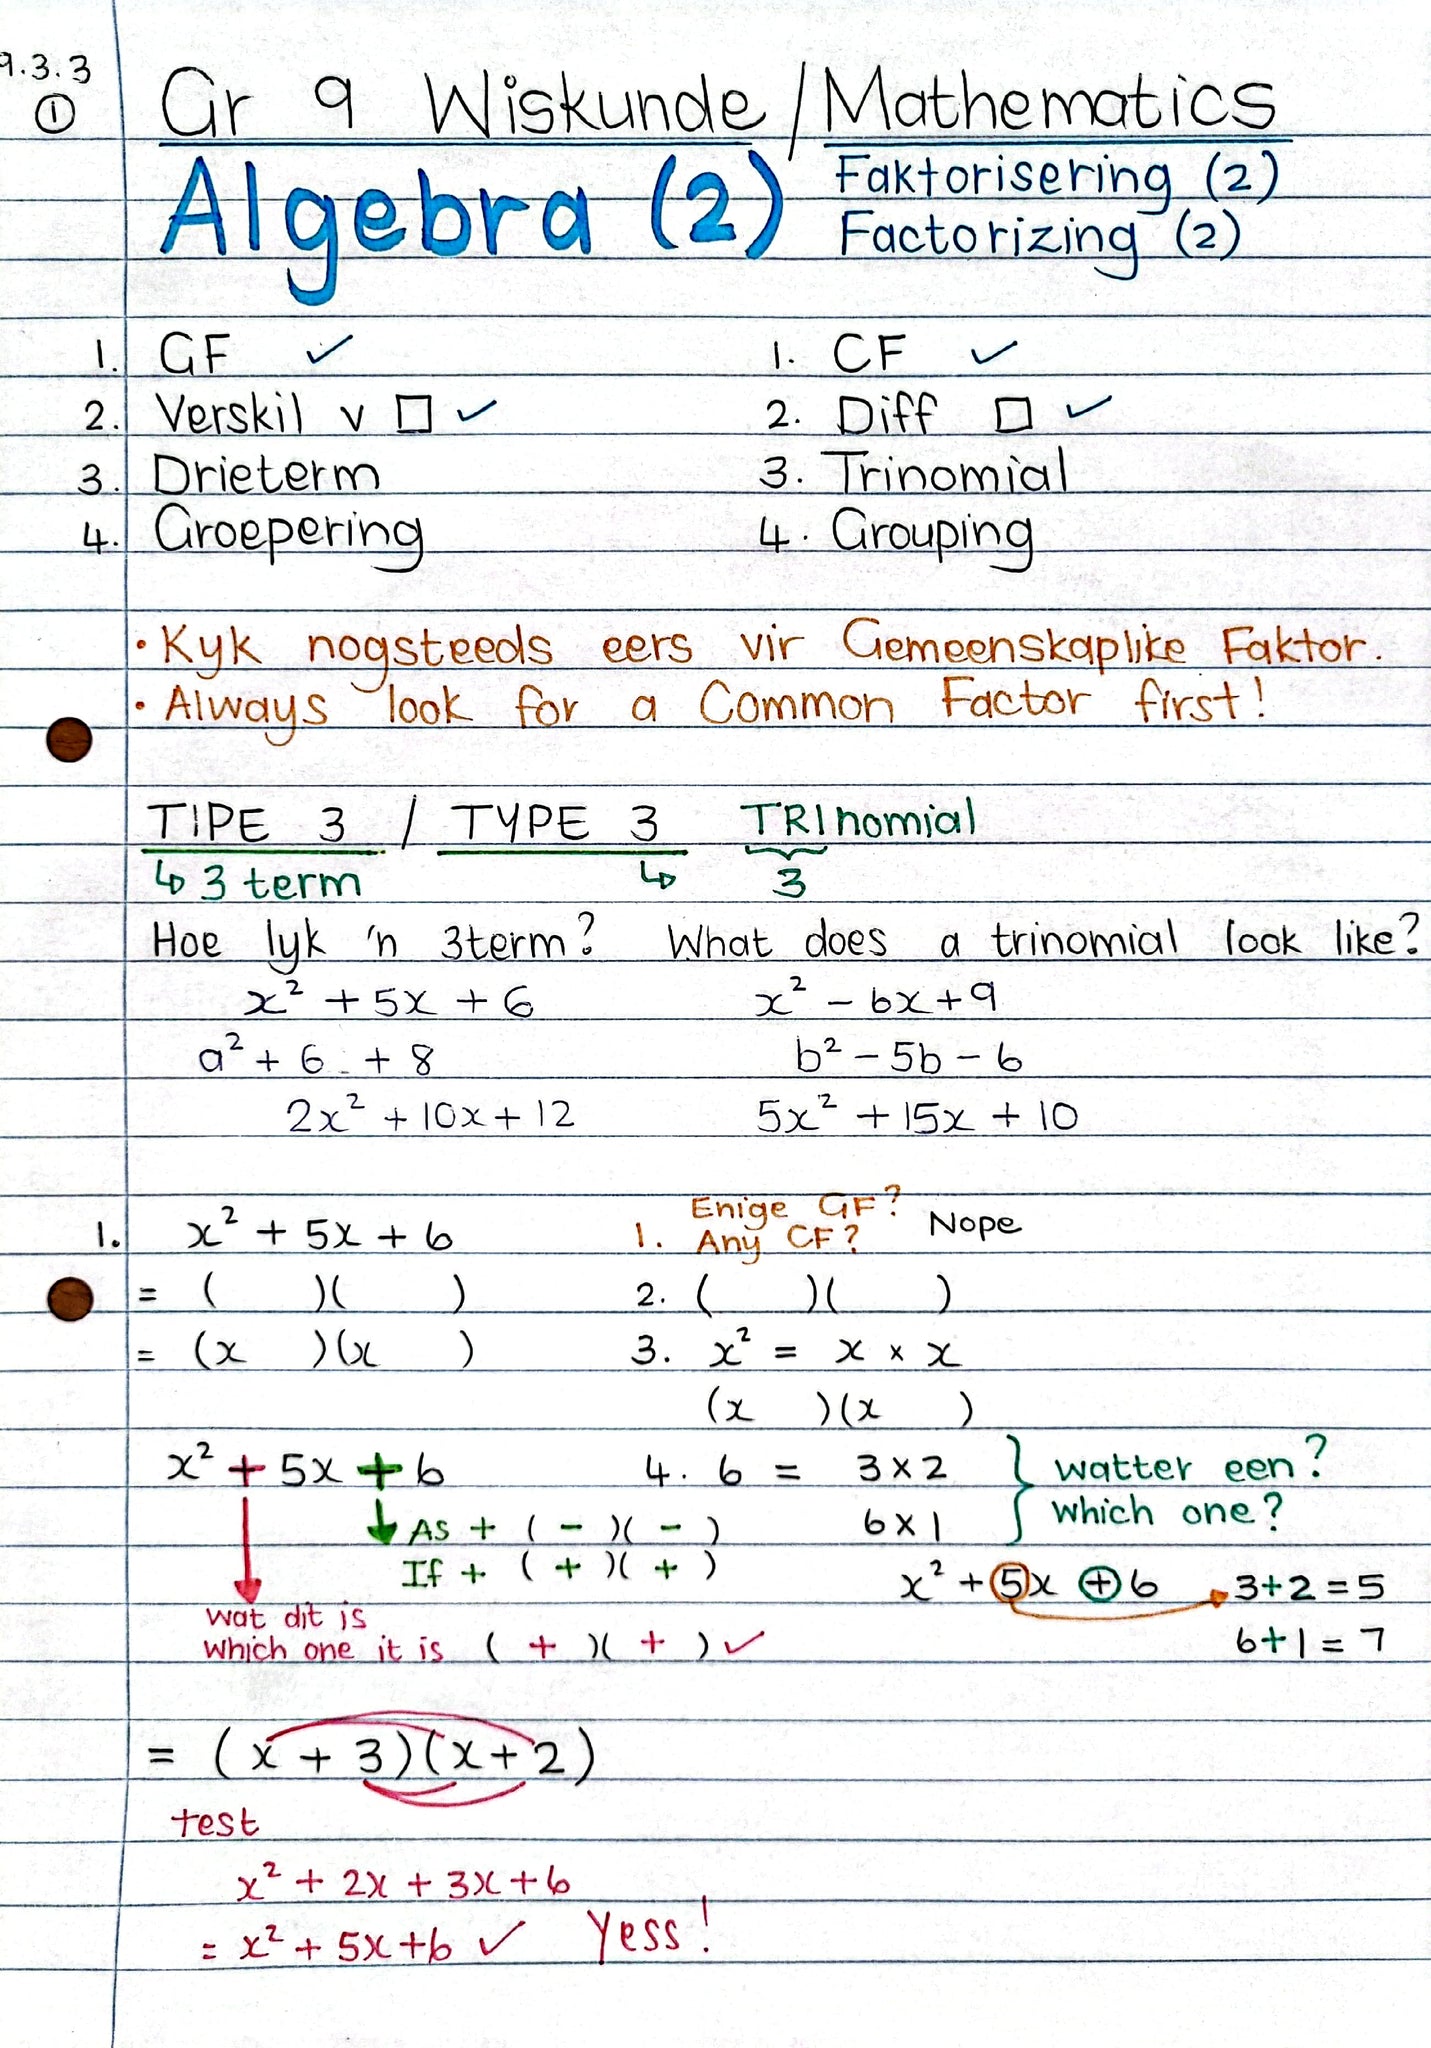 9.3.3
①
Gr 9 Wiskunde / Mathematics
Algebra (2)
Faktorisering (2)
Factorizing (2)
1. GF ✓
2. Verskil v □ ✓
3. Drieterm
4. Groepering
1. CF ✓
2. Diff □ ✓
3. Trinomial
4. Grouping
• Kyk nogsteeds eers vir Gemeenskaplike Faktor.
• Always look for a Common Factor first!
TIPE 3 / TYPE 3 TRInomial
↳ 3 term ↳ 3
Hoe lyk 'n 3term? What does a trinomial look like?
x² + 5x + 6 x² - 6x + 9
a² + 6 + 8 b² - 5b - 6
2x² + 10x + 12 5x² + 15x + 10
1. x² + 5x + 6
= ( )( )
= (x )(x )
1. Enige GF?
Any CF? Nope
2. ( )( )
3. x² = x × x
(x )(x )
x² + 5x + 6
As + ( - )( - )
If + ( + )( + )
wat dit is
which one it is ( + )( + ) ✓
4. 6 = 3 × 2
6 × 1
watter een?
which one?
x² + 5x + 6 → 3 + 2 = 5
6 + 1 = 7
= (x + 3)(x + 2)
test
x² + 2x + 3x + 6
= x² + 5x + 6 ✓ Yess!